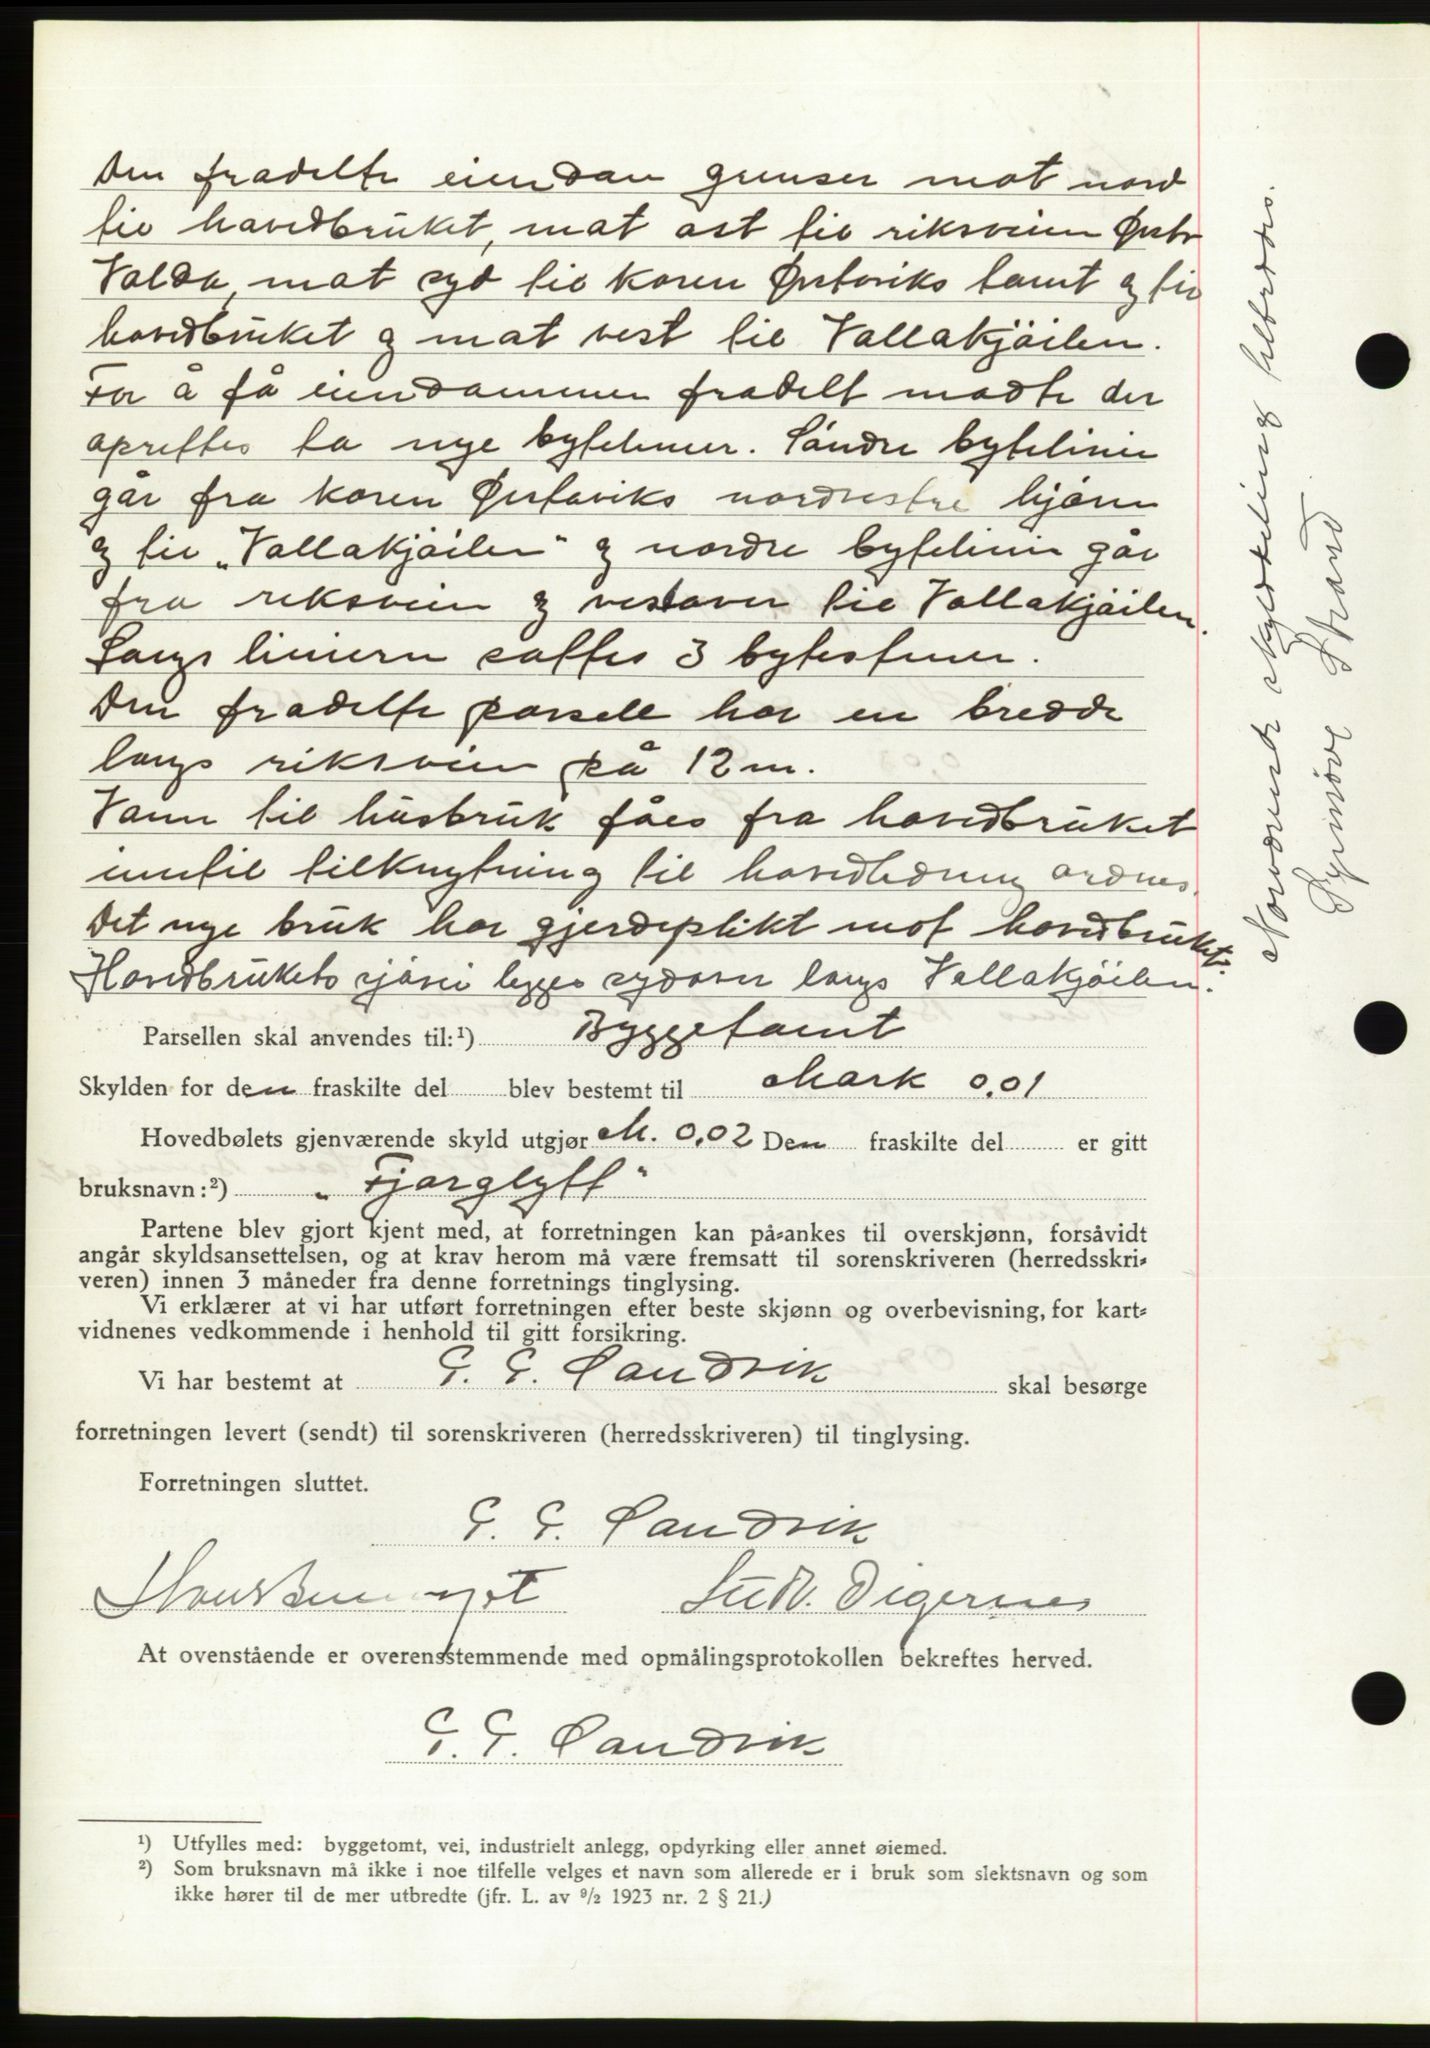 Den fradelte eiendom grenser mot nord
til hovedbruket, mot øst til riksveien Ørsta
Volda, mot syd til Karen Ørstaviks tomt og til
hovedbruket og mot vest til Vallakjøilen.
For å få eiendommen fradelt måtte der
oprettes to nye bytelinier. Søndre bytelinie
går fra Karen Ørstaviks nordvestre hjørne
og til „Vallakjøilen“ og nordre bytelinie går
fra riksveien og vestover til Vallakjøilen.
Langs liniene sattes 3 bytesteiner.
Den fradelte parsell har en bredde
langs riksveien på 12 m.
Vann til husbruk fåes fra hovedbruket
inntil tilknytning til hovedledning ordnes.
Det nye bruk har gjerdeplikt mot hovedbruket.
Hovedbrukets sjøvei legges sydover langs Vallakjøilen.
Parsellen skal anvendes til:¹) Byggetomt
Skylden for den fraskilte del blev bestemt til Mark 0,01
Hovedbølets gjenværende skyld utgjør M. 0,02 Den fraskilte del er gitt
bruksnavn:²) „Fjørglytt“
Partene blev gjort kjent med, at forretningen kan på-ankes til overskjønn, forsåvidt
angår skyldsansettelsen, og at krav herom må være fremsatt til sorenskriveren (herredsskri-
veren) innen 3 måneder fra denne forretnings tinglysing.
Vi erklærer at vi har utført forretningen efter beste skjønn og overbevisning, for kart-
vidnenes vedkommende i henhold til gitt forsikring.
Vi har bestemt at G. G. Sandvik skal besørge
forretningen levert (sendt) til sorenskriveren (herredsskriveren) til tinglysing.
Forretningen sluttet.
G. G. Sandvik
Digernes
At ovenstående er overensstemmende med opmålingsprotokollen bekreftes herved.
G. G. Sandvik
¹) Utfylles med: byggetomt, vei, industrielt anlegg, opdyrking eller annet øiemed.
²) Som bruksnavn må ikke i noe tilfelle velges et navn som allerede er i bruk som slektsnavn og som
ikke hører til de mer utbredte (jfr. L. av ⁹/₂ 1923 nr. 2 § 21.)
Nærværende skylddeling tiltredes.
Synnøve Strand